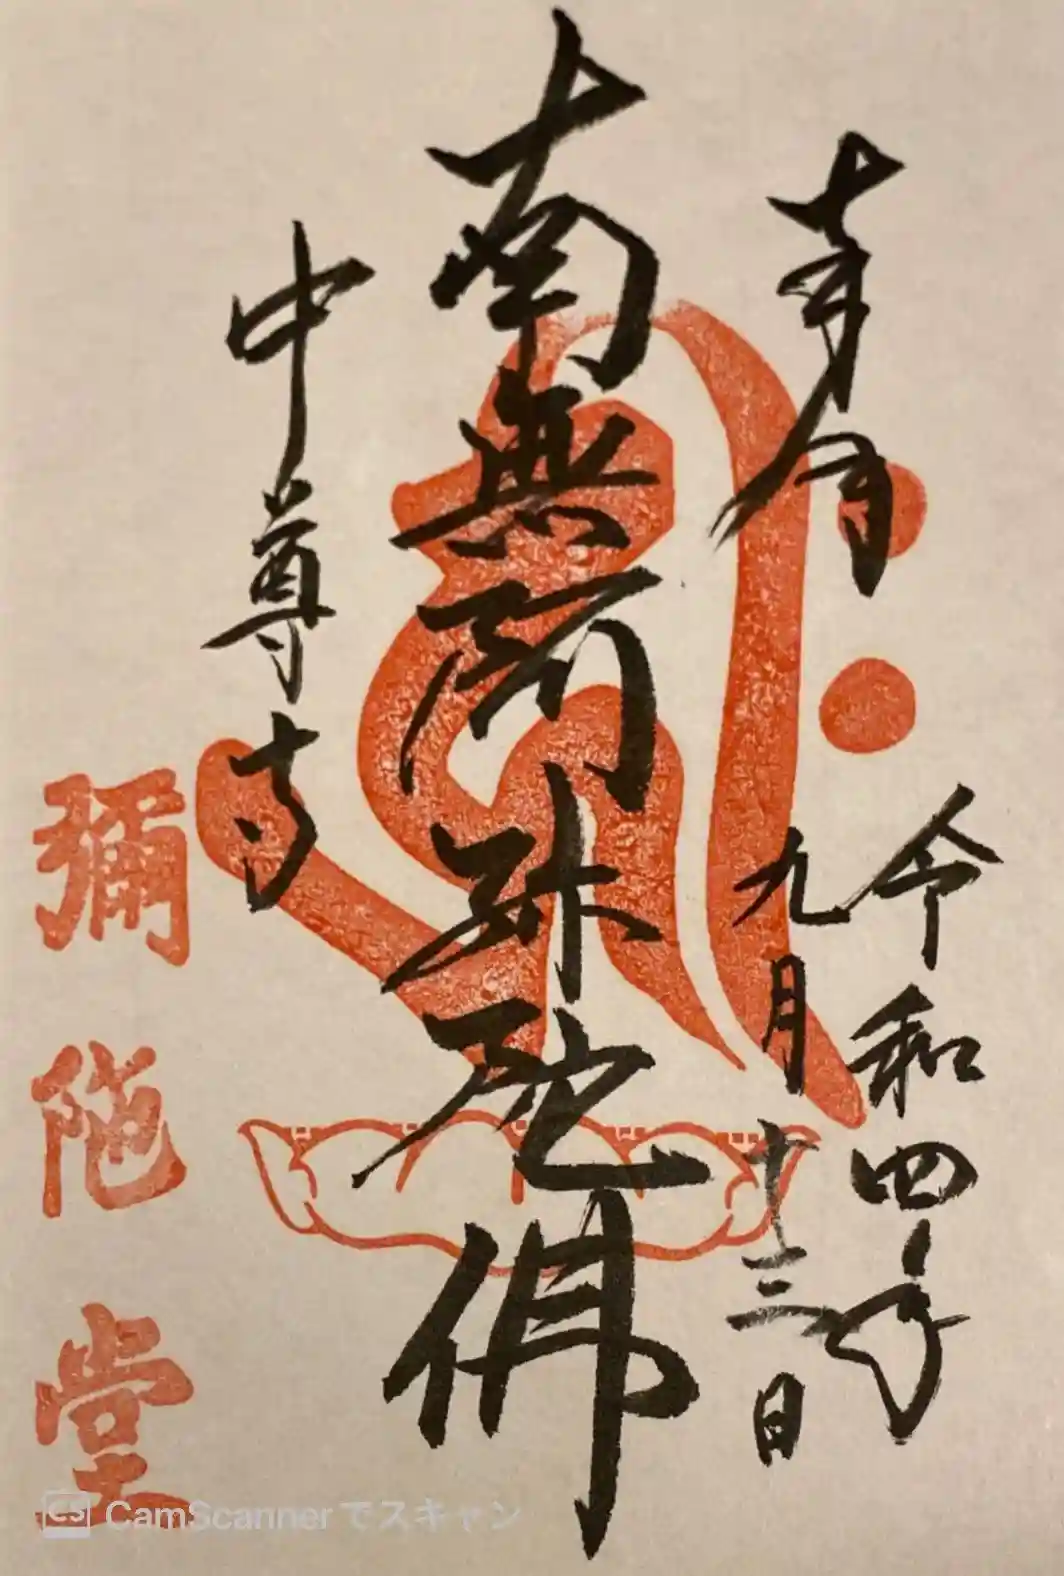 奉拝
令和四年
九月十三日
南無阿弥陀佛
中尊寺
彌陀堂
CamScannerでスキャン